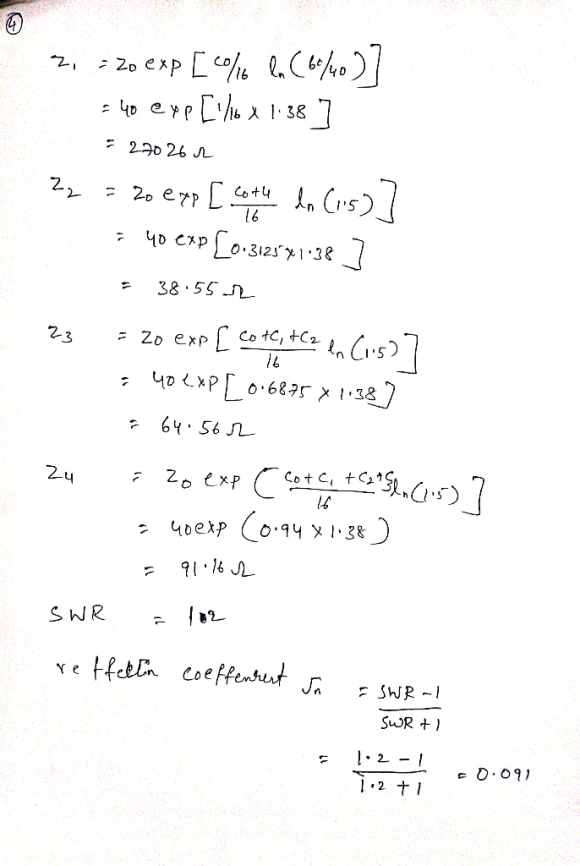 ④
Z₁ = Z₀ exp [ C₀/16 ln (60/40) ]
= 40 exp [ 1/16 x 1.38 ]
= 27026 Ω
Z₂ = Z₀ exp [ (C₀+4)/16 ln (1.5) ]
= 40 exp [ 0.3125 x 1.38 ]
= 38.55 Ω
Z₃ = Z₀ exp [ (C₀+C₁+C₂)/16 ln (1.5) ]
= 40 exp [ 0.6875 x 1.38 ]
= 64.56 Ω
Z₄ = Z₀ exp ( (C₀+C₁+C₂+C₃)/16 ln (1.5) ]
= 40 exp (0.94 x 1.38)
= 91.16 Ω
SWR = 1.2
coeffenrent Γₙ = (SWR - 1)/(SWR + 1)
= (1.2 - 1)/(1.2 + 1) = 0.091